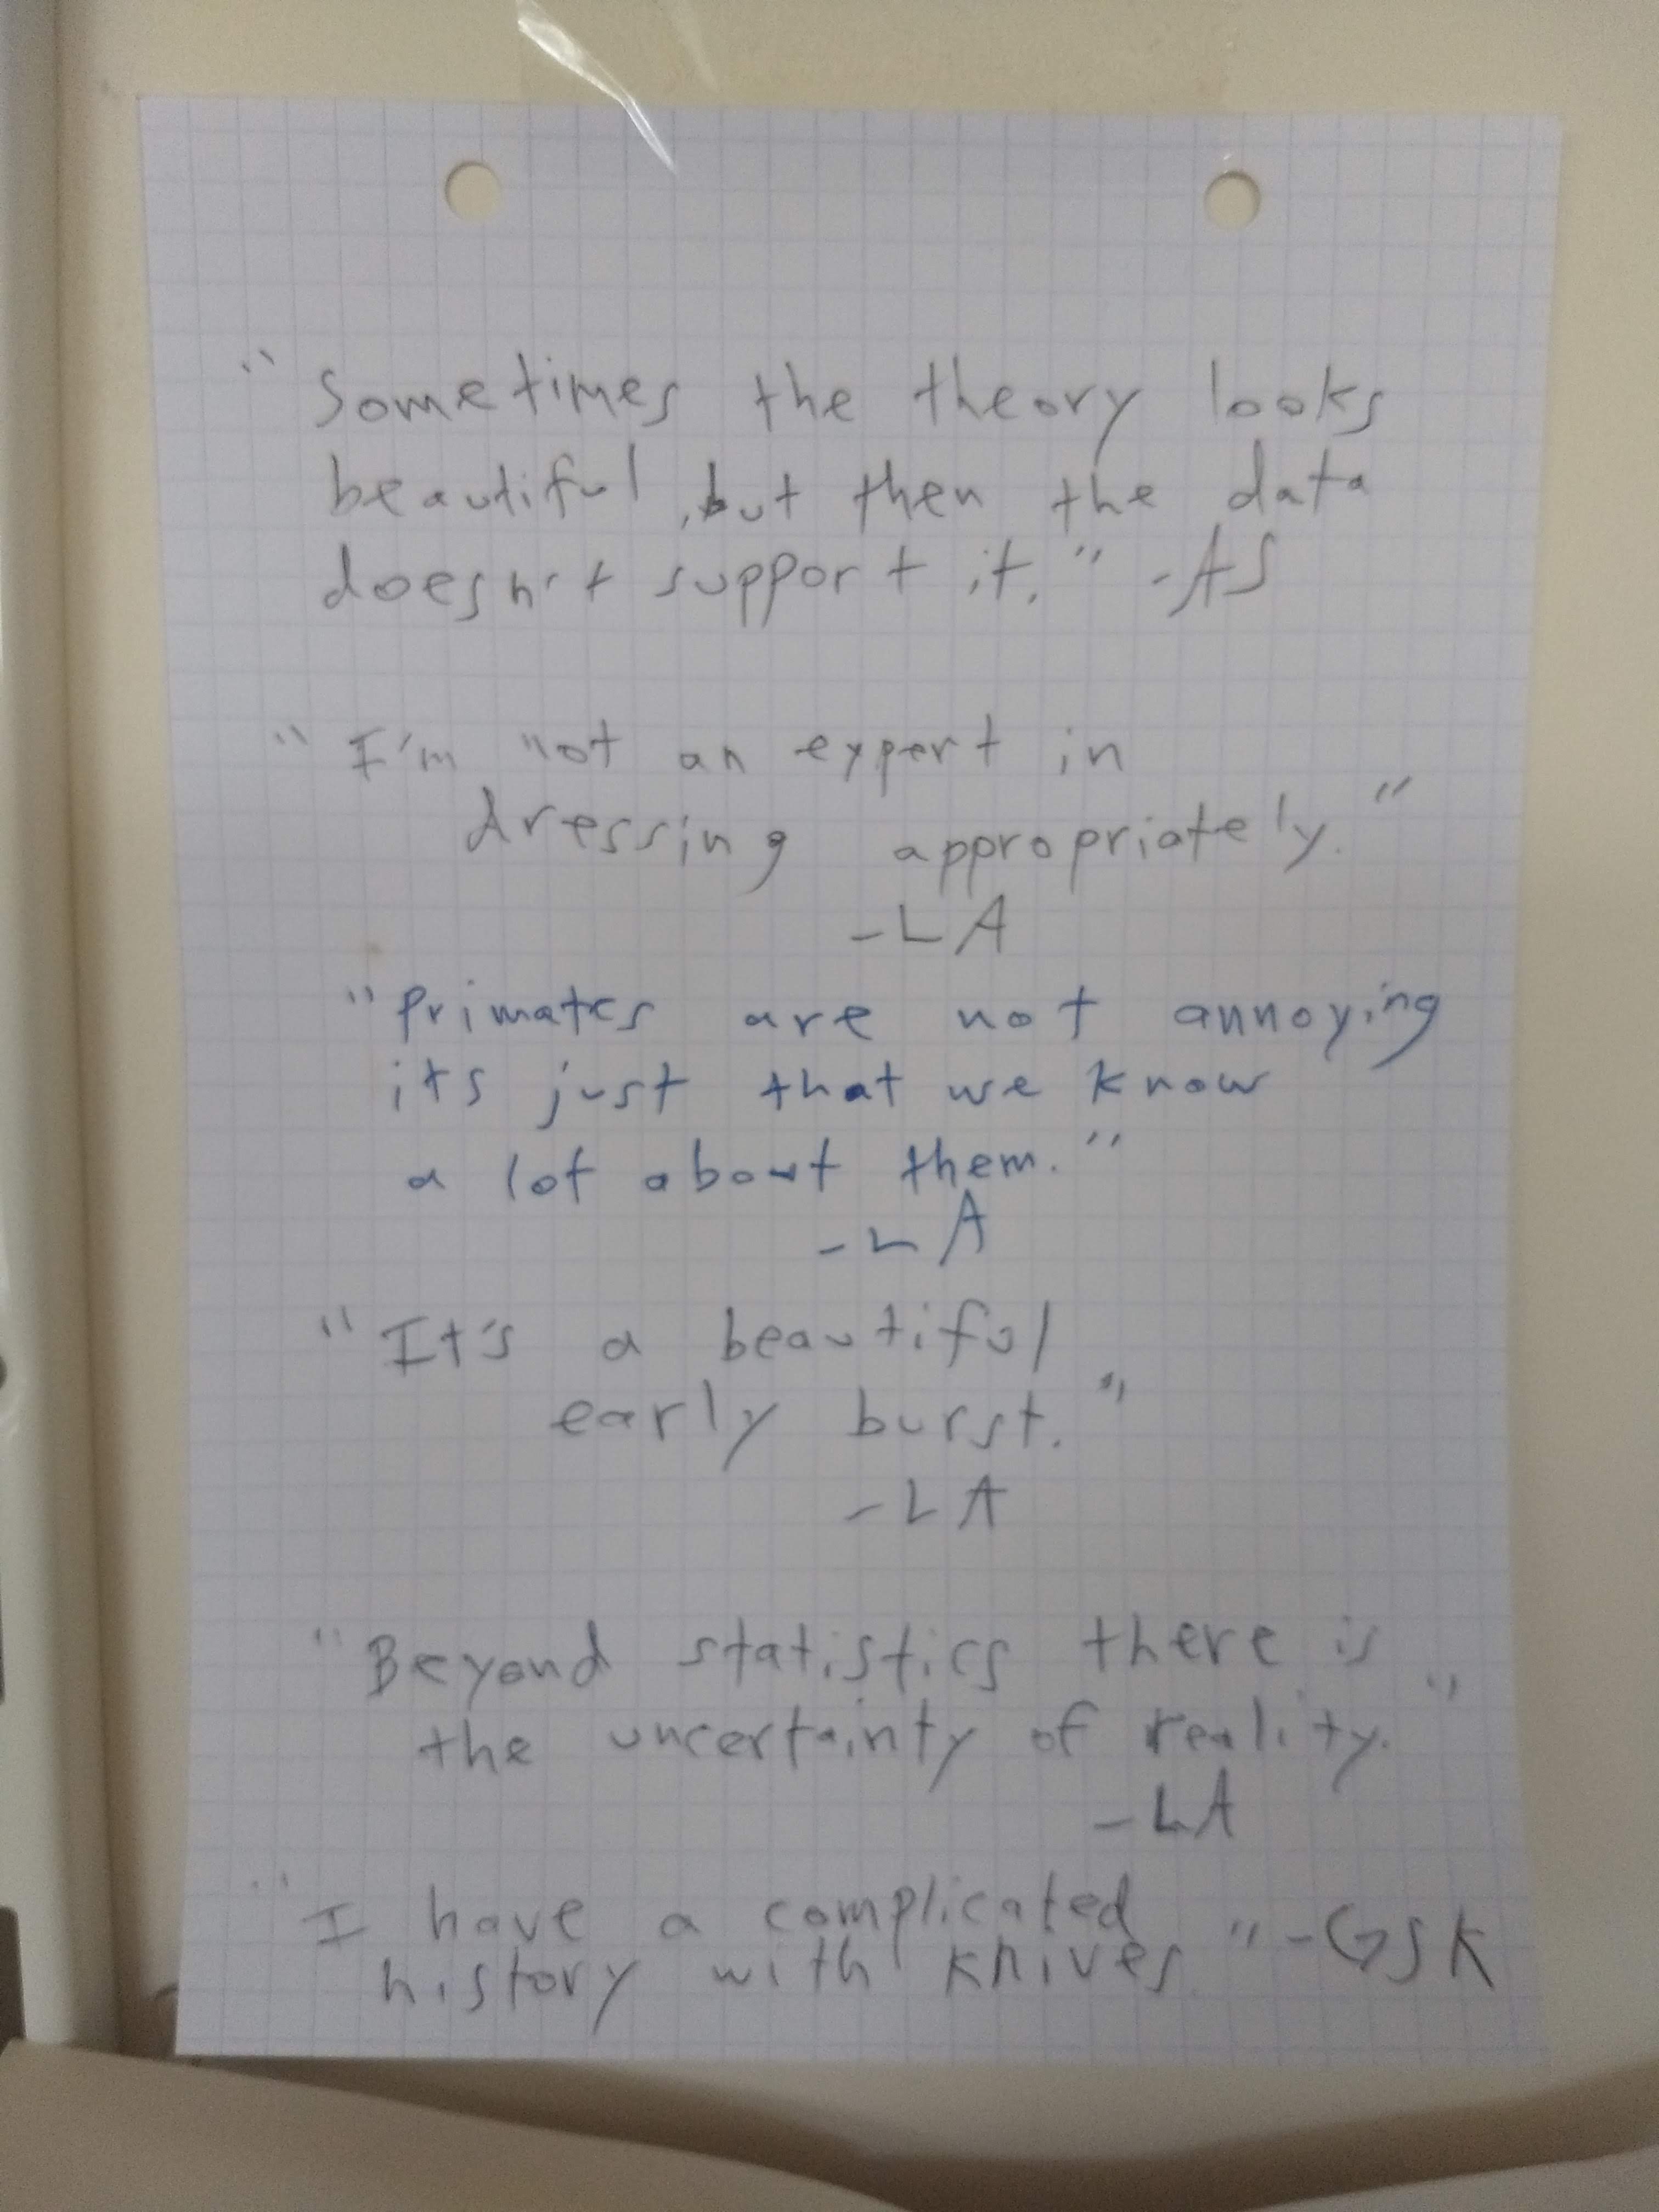 "Sometimes the theory looks
beautiful, but then the data
doesn't support it." -AS
"I'm not an expert in
dressing appropriately."
-LA
"Primates are not annoying
its just that we know
a lot about them."
-LA
"It's a beautiful
early burst."
-LA
"Beyond statistics there is
the uncertainty of reality."
-LA
"I have a complicated
history with knives." -GSK